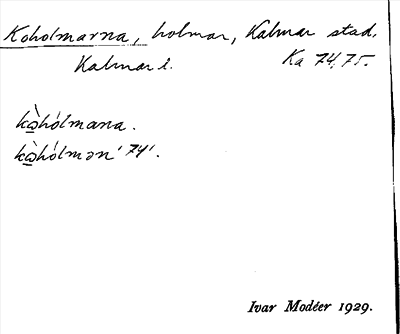 Koholmarna, holmar, Kalmar stad,
Kalmar l. Ka 74,75.
kòhólmana.
kòhólmən' 74'.
Ivar Modéer 1929.